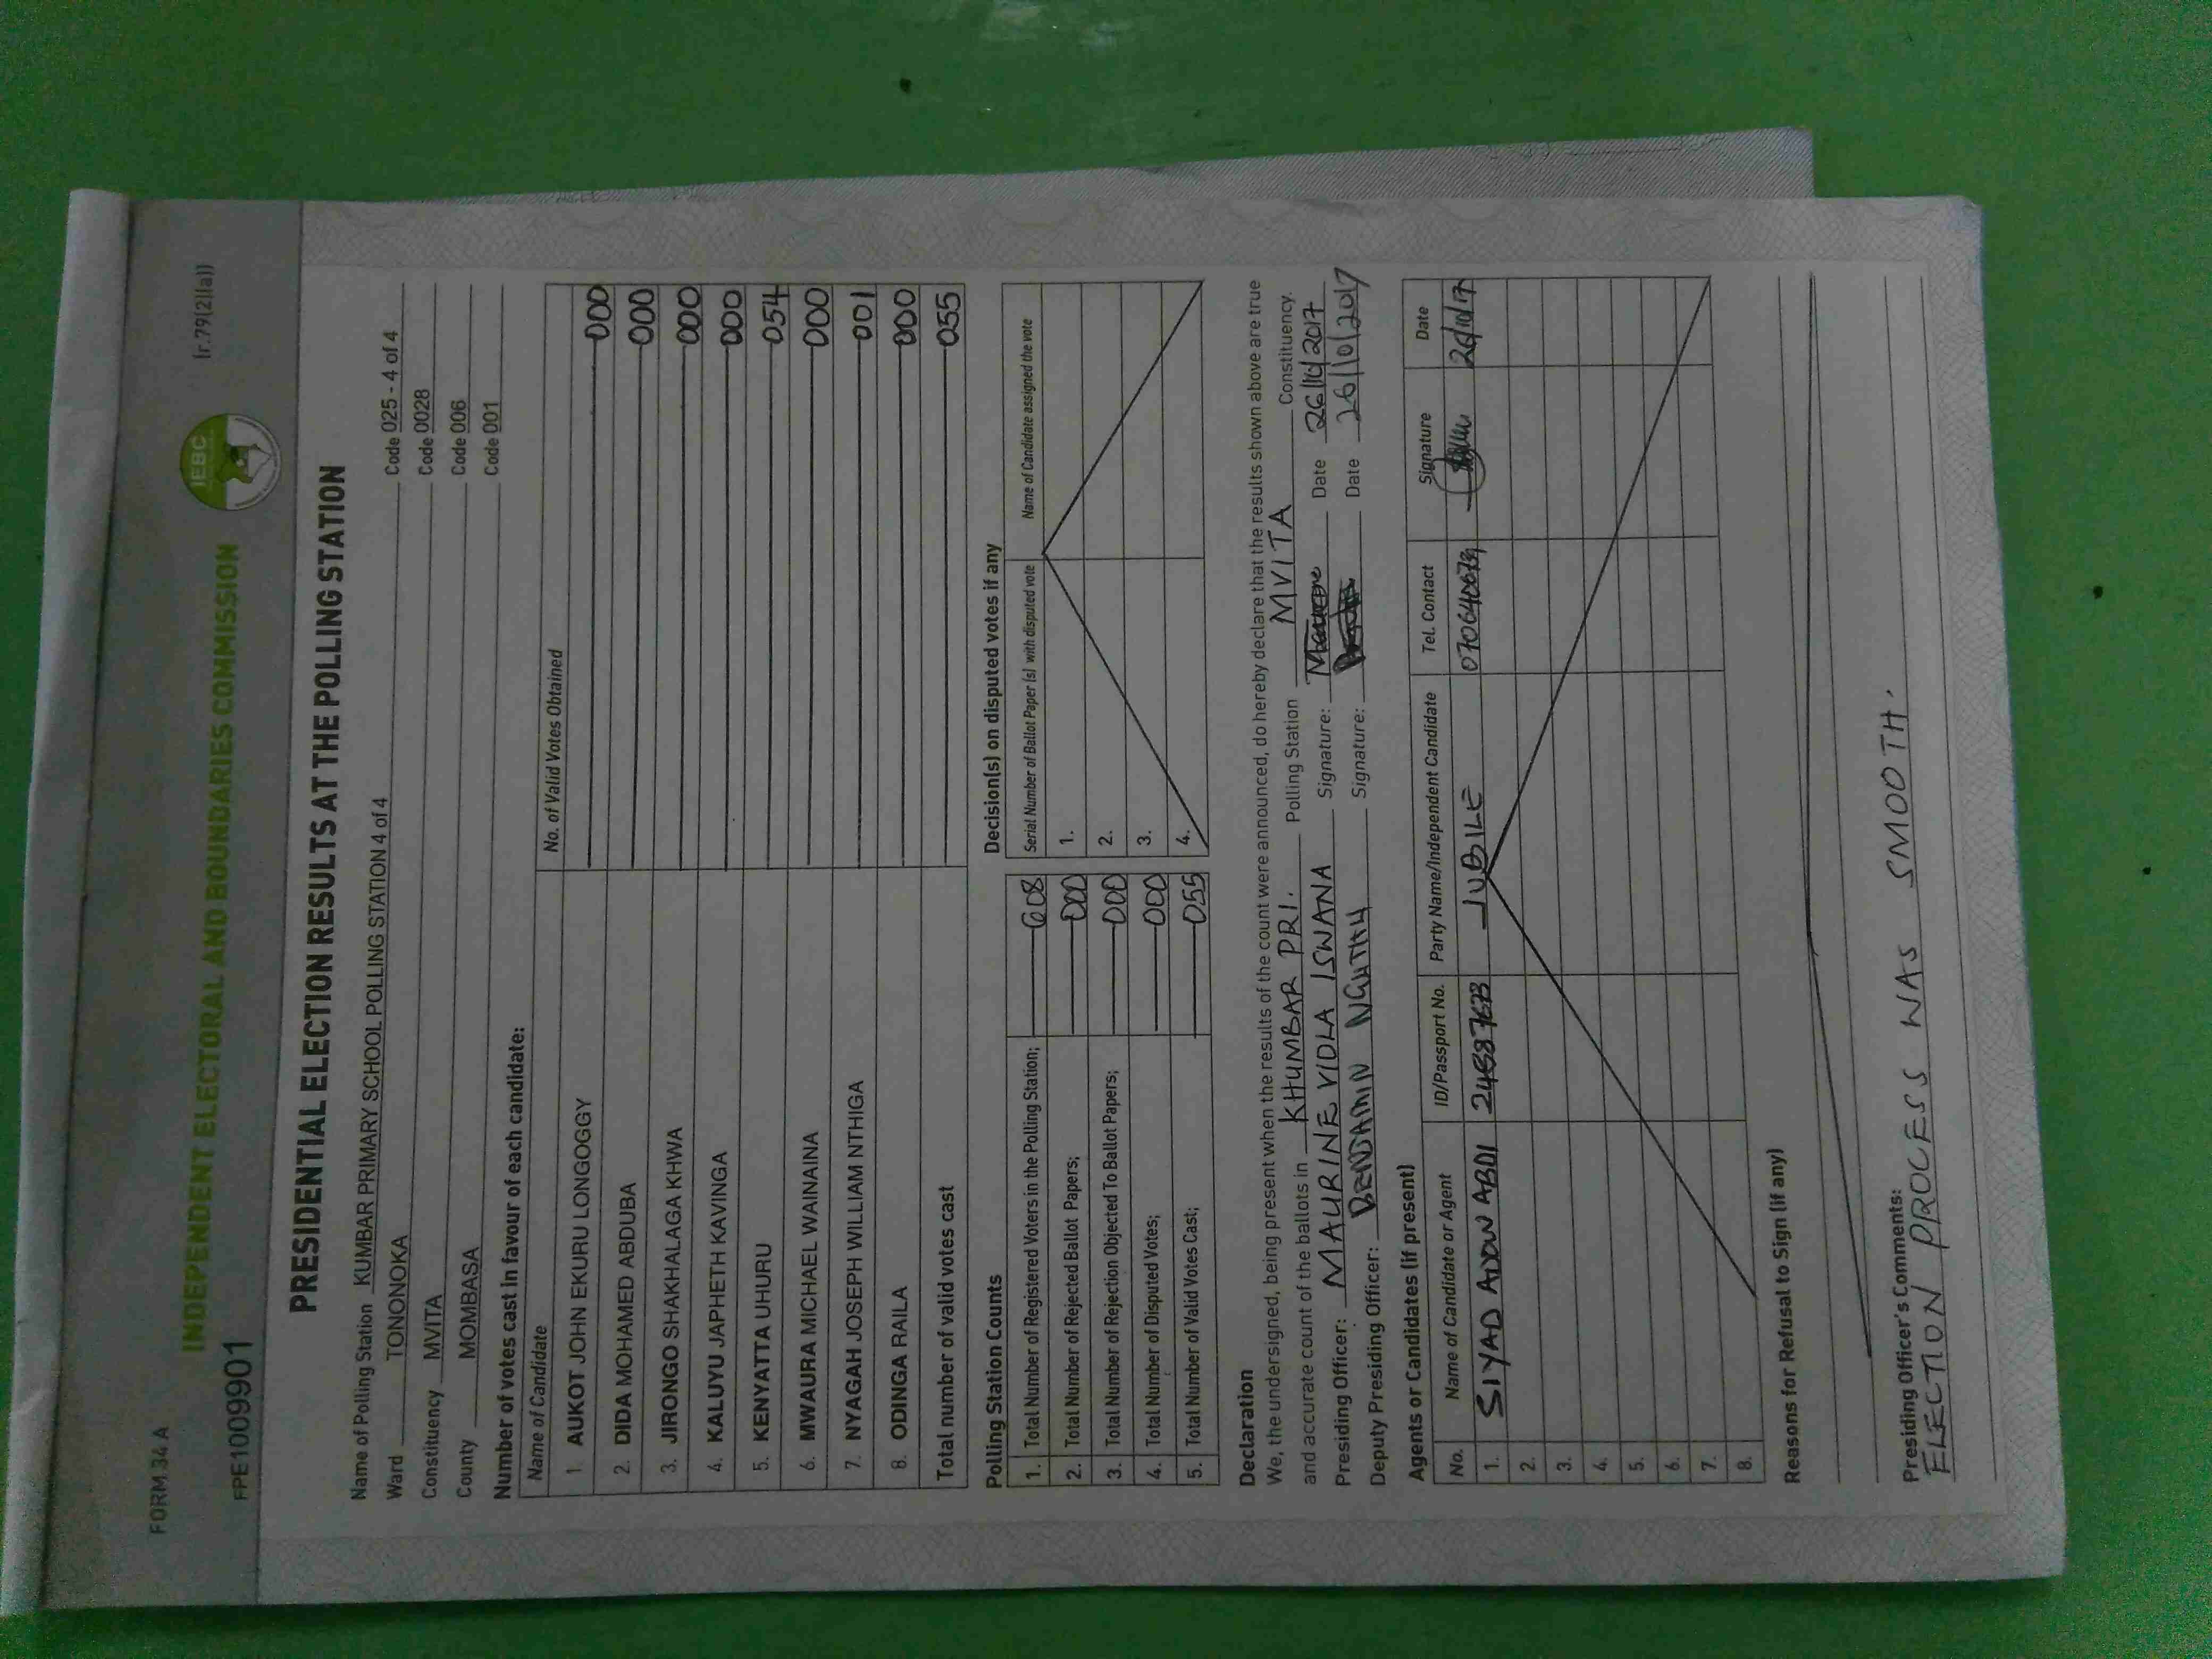 FORM 34 A
(r.79(2)(a))
IEBC
INDEPENDENT ELECTORAL AND BOUNDARIES COMMISSION
FPE1009901
PRESIDENTIAL ELECTION RESULTS AT THE POLLING STATION
Name of Polling Station KUMBAR PRIMARY SCHOOL POLLING STATION 4 of 4
Ward TONONOKA Code 025 - 4 of 4
Constituency MVITA Code 0028
County MOMBASA Code 006
Code 001
Number of votes cast in favour of each candidate:
Name of Candidate No. of Valid Votes Obtained
1. AUKOT JOHN EKURU LONGOGGY 000
2. DIDA MOHAMED ABDUBA 000
3. JIRONGO SHAKHALAGA KHWA 000
4. KALUYU JAPHETH KAVINGA 000
5. KENYATTA UHURU 054
6. MWAURA MICHAEL WAINAINA 000
7. NYAGAH JOSEPH WILLIAM NTHIGA 001
8. ODINGA RAILA 000
Total number of valid votes cast 055
Polling Station Counts
1. Total Number of Registered Voters in the Polling Station; 608
2. Total Number of Rejected Ballot Papers; 000
3. Total Number of Rejection Objected To Ballot Papers; 000
4. Total Number of Disputed Votes; 000
5. Total Number of Valid Votes Cast; 055
Decision(s) on disputed votes if any
Serial Number of Ballot Paper (s) with disputed vote Name of Candidate assigned the vote
1.
2.
3.
4.
Declaration
We, the undersigned, being present when the results of the count were announced, do hereby declare that the results shown above are true
and accurate count of the ballots in KHUMBAR PRI. Polling Station MVITA Constituency.
Presiding Officer: MAURINE VIOLA ISWANA Signature: Date 26/10/2017
Deputy Presiding Officer: Signature: Date 26/10/2017
Agents or Candidates (if present)
No. Name of Candidate or Agent ID/Passport No. Party Name/Independent Candidate Tel. Contact Signature Date
1. SIYAD ADOW ABDI JUBILE 26/10/17
2.
3.
4.
5.
6.
7.
8.
Reasons for Refusal to Sign (if any)
Presiding Officer's Comments:
ELECTION PROCESS WAS SMOOTH.